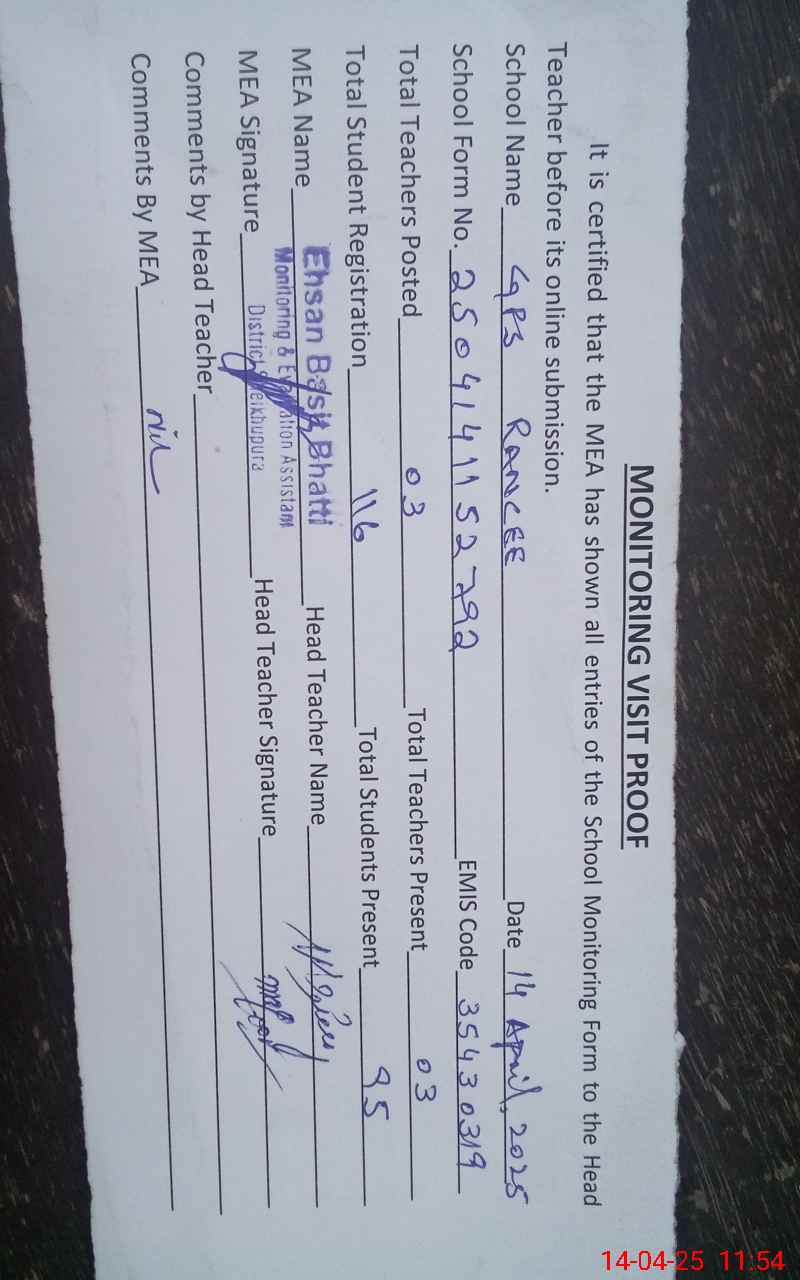 MONITORING VISIT PROOF
It is certified that the MEA has shown all entries of the School Monitoring Form to the Head
Teacher before its online submission.
School Name GPS RANCEE Date 14 April, 2025
School Form No. 2504141152792 EMIS Code 35430319
Total Teachers Posted 03 Total Teachers Present 03
Total Student Registration 116 Total Students Present 95
MEA Name Ehsan Basit Bhatti Head Teacher Name
Monitoring & Evaluation Assistant
MEA Signature District Sheikhupura Head Teacher Signature
Comments by Head Teacher
Comments By MEA Nil
14-04-25 11:54